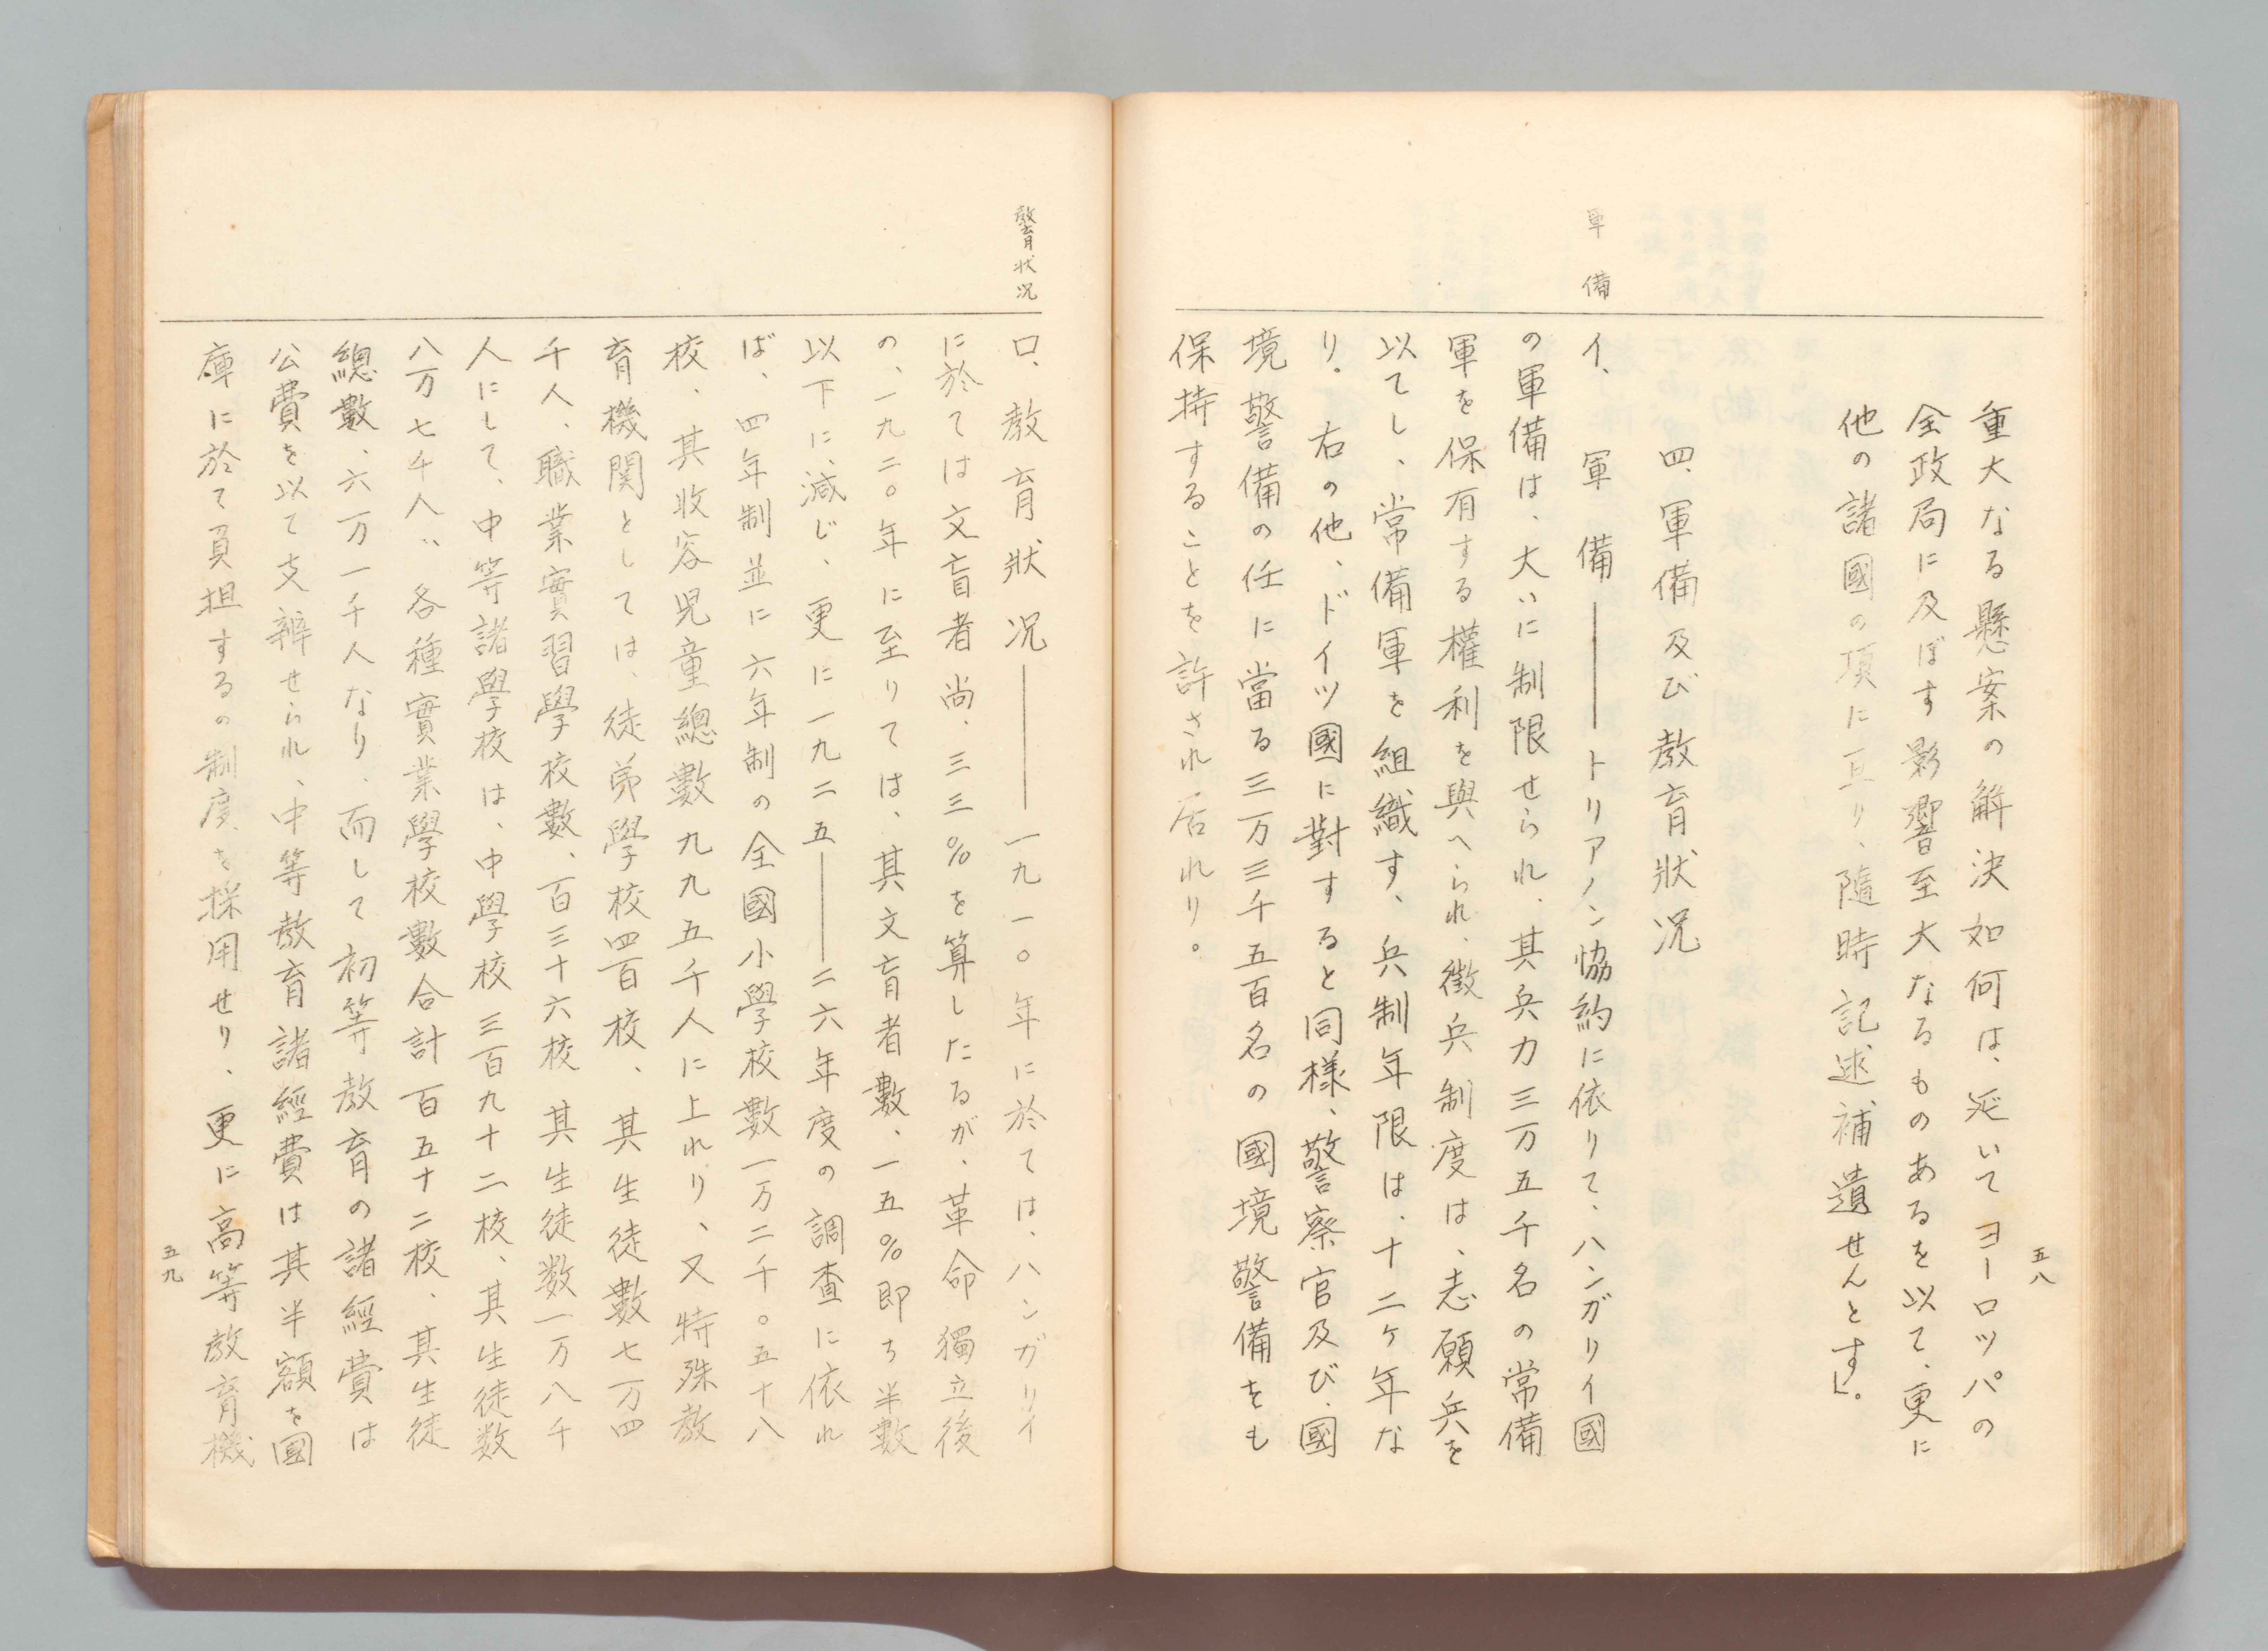 五八
重大なる懸案の解決如何は、延いてヨーロッパの
全政局に及ぼす影響至大なるものあるを以て、更に
他の諸國の項に亙り、隨時記述補遺せんとす」。
四、軍備及び教育狀况
軍備
イ、軍備――トリアノン協約に依りて、ハンガリイ國
の軍備は、大いに制限せられ、其兵力三万五千名の常備
軍を保有する權利を與へられ、徴兵制度は、志願兵を
以てし、常備軍を組織す、兵制年限は、十二ヶ年な
り。右の他、ドイツ國に對すると同樣、警察官及び、國
境警備の任に當る三万三千五百名の國境警備をも
保持することを許され居れり。
教育狀况
口、教育狀况――一九一〇年に於ては、ハンガリイ
に於ては文盲者尚、三三%を算したるが、革命獨立後
の、一九二〇年に至りては、其文盲者數、一五%即ち半數
以下に減じ、更に一九二五――二六年度の調査に依れ
ば、四年制並に六年制の全國小學校數一万二千〇五十八
校、其收容児童總數九九五千人に上れり、又特殊教
育機関としては、徒弟學校四百校、其生徒數七万四
千人、職業實習學校數、百三十六校其生徒数一万八千
人にして、中等諸學校は、中學校三百九十二校、其生徒数
八万七千人、各種實業學校數合計百五十二校、其生徒
總數、六万一千人なり、而して初等教育の諸經費は
公費を以て支辨せられ、中等教育諸經費は其半額を國
庫に於て負担するの制度を採用せり、更に高等教育機
五九